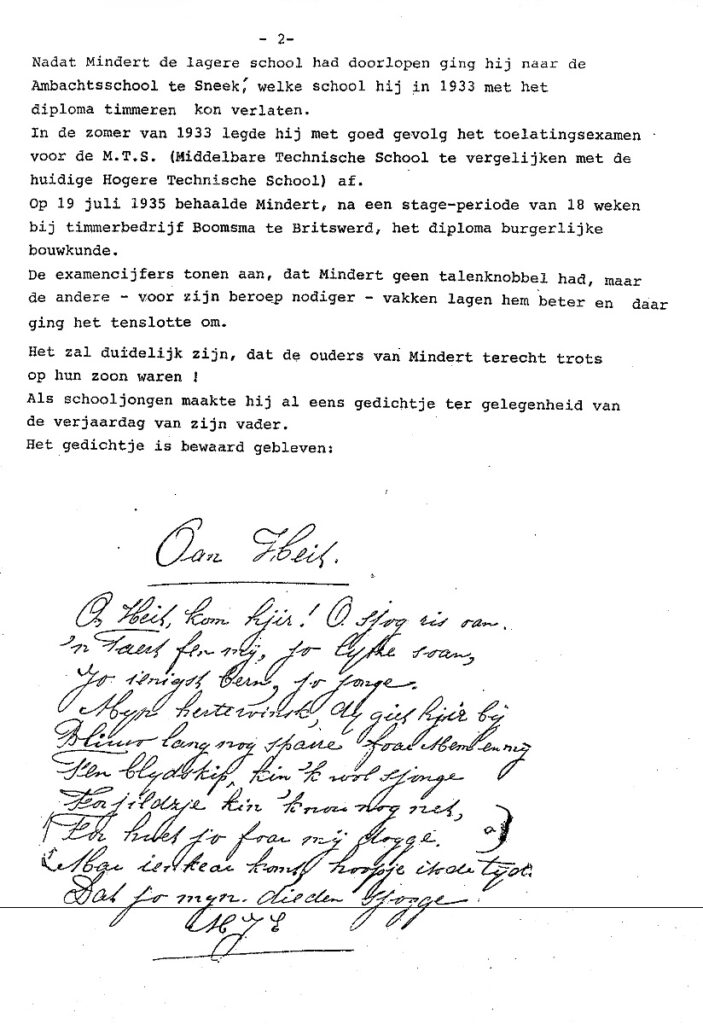 - 2-
Nadat Mindert de lagere school had doorlopen ging hij naar de
Ambachtsschool te Sneek, welke school hij in 1933 met het
diploma timmeren kon verlaten.
In de zomer van 1933 legde hij met goed gevolg het toelatingsexamen
voor de M.T.S. (Middelbare Technische School te vergelijken met de
huidige Hogere Technische School) af.
Op 19 juli 1935 behaalde Mindert, na een stage-periode van 18 weken
bij timmerbedrijf Boomsma te Britswerd, het diploma burgerlijke
bouwkunde.
De examencijfers tonen aan, dat Mindert geen talenknobbel had, maar
de andere - voor zijn beroep nodiger - vakken lagen hem beter en daar
ging het tenslotte om.
Het zal duidelijk zijn, dat de ouders van Mindert terecht trots
op hun zoon waren !
Als schooljongen maakte hij al eens gedichtje ter gelegenheid van
de verjaardag van zijn vader.
Het gedichtje is bewaard gebleven:
Oan Heit.
O, Heit, kom hjir! O, sjog ris oan.
'n Taert fen mij, jo lytse soan,
Jo ienigst bern, jo jonge.
Myn hertewinsk, dy giet hjir bij
Bliuw lang nog sparre foar Mem en mij
Fen blydskip, kin 'k wol sjonge
Forjildzje kin 'k nou nog net,
For hwet jo foar mij dogge.
Mar ienkear komt, hoopje ik de tyd.
Dat jo myn dieden sjogge
M J E